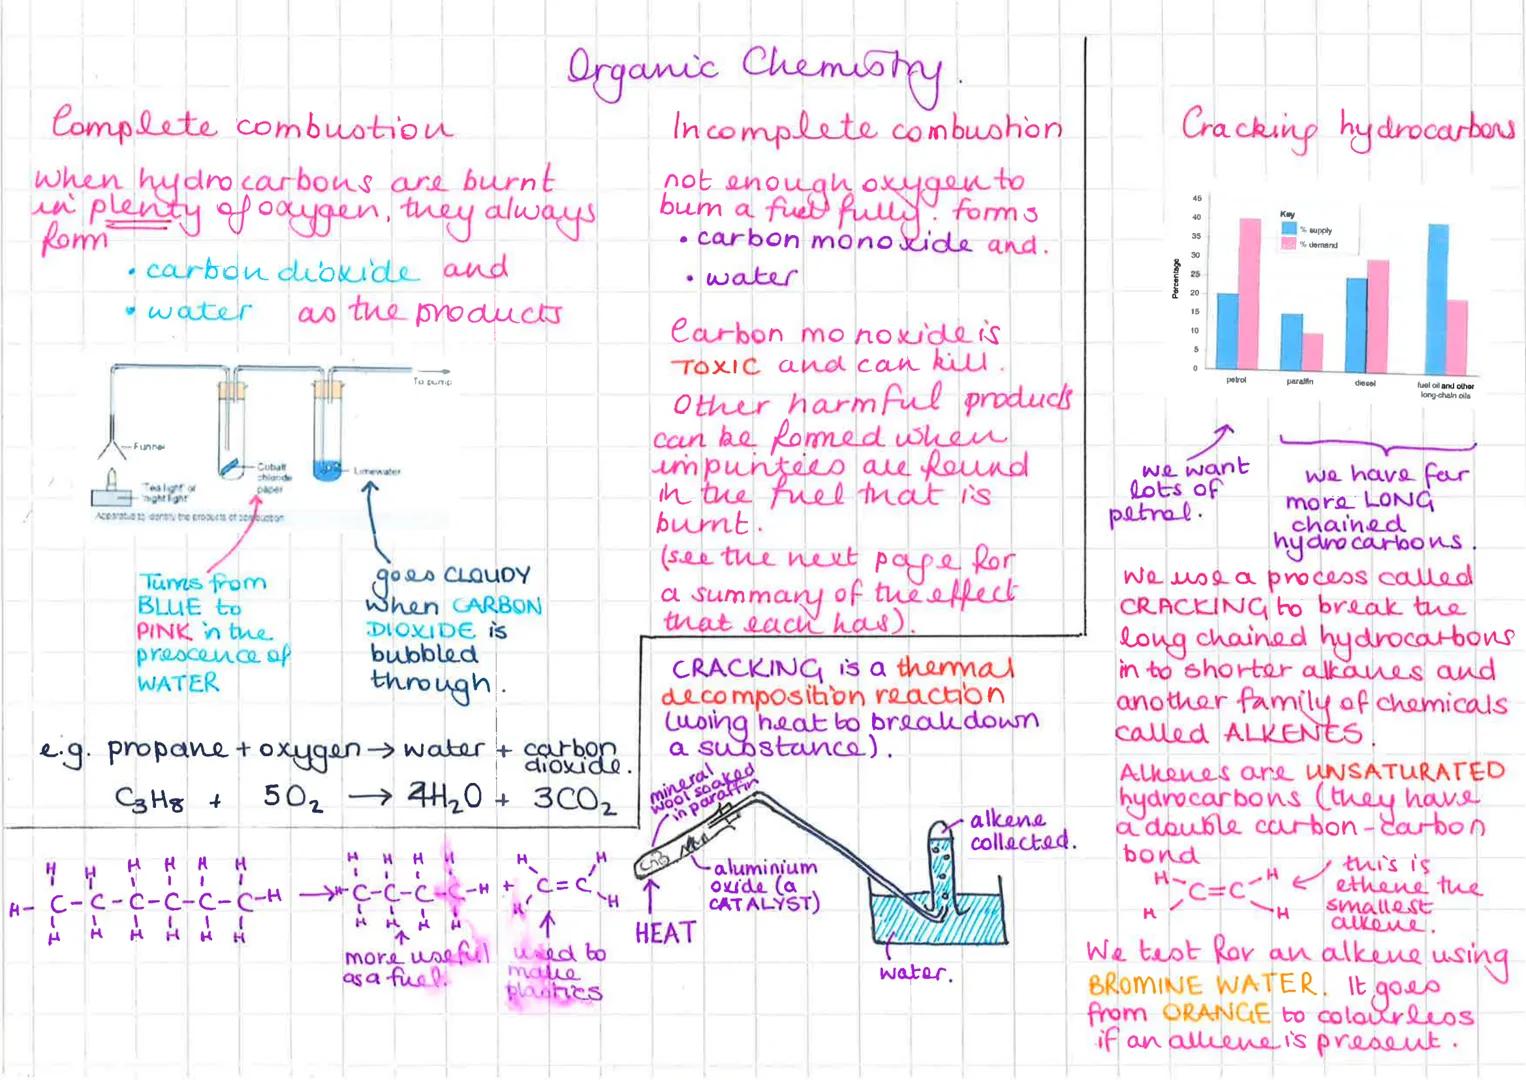 Organic Chemistry.
Complete combustion
when hydrocarbons are burnt
in plenty of oxygen, they always
form
• carbon dioxide and
• water as the products
To pump
Funnel
Cobalt
chloride
paper
Limewater
Tea light or
'night light'
Apparatus to identify the products of combustion
Turns from
BLUE to
PINK in the
prescence of
WATER
goes CLOUDY
when CARBON
DIOXIDE is
bubbled
through.
e.g. propane + oxygen → water + carbon
dioxide.
C3H8 + 5O2 → 4H2O + 3CO2
Incomplete combustion
not enough oxygen to
burn a fuel fully. forms
• carbon monoxide and.
• water
Carbon monoxide is
TOXIC and can kill.
Other harmful products
can be formed when
impurities are found
in the fuel that is
burnt.
(see the next page for
a summary of the effect
that each has).
Cracking hydrocarbons
Percentage
45
40
35
30
25
20
15
10
5
0
Key
% supply
% demand
petrol
paraffin
diesel
fuel oil and other
long-chain oils
we want
lots of
petrol.
we have far
more LONG
chained
hydrocarbons.
We use a process called
CRACKING to break the
long chained hydrocarbons
in to shorter alkanes and
another family of chemicals
called ALKENES.
Alkenes are UNSATURATED
hydrocarbons (they have
a double carbon-carbon
bond
H H
C=C
H H
this is
ethene the
smallest
alkene.
We test for an alkene using
BROMINE WATER. It goes
from ORANGE to colourless
if an alkene is present.
CRACKING is a thermal
decomposition reaction
(using heat to break down
a substance).
mineral
wool soaked
in paraffin
aluminium
oxide (a
CATALYST)
HEAT
alkene
collected.
water.
H H H H H H
H-C-C-C-C-C-C-H
H H H H H H
→
H H H H
H-C-C-C-C-H
H H H H
+
H H
C=C
H H
more useful
as a fuel.
used to
make
plastics